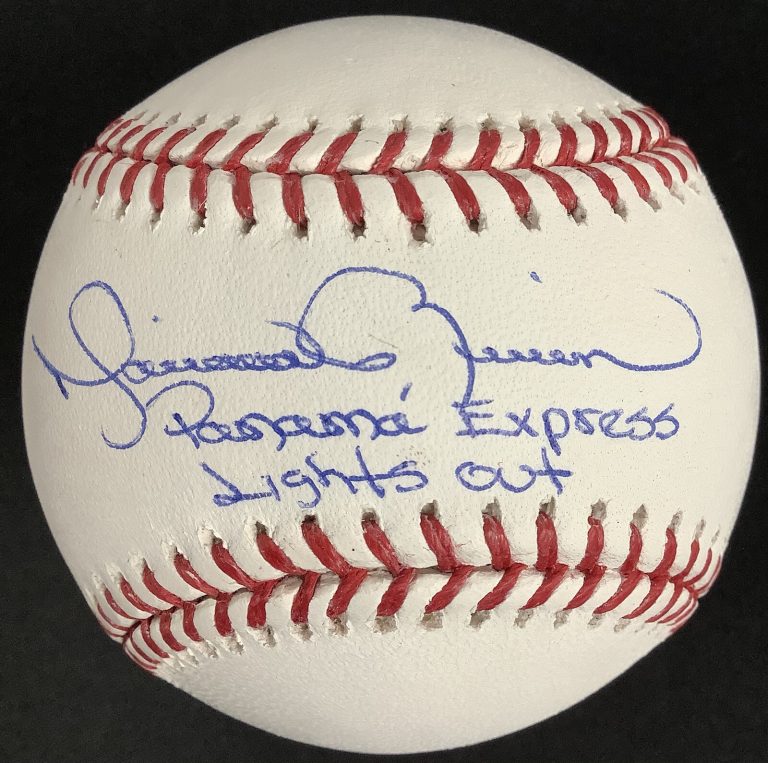 Mariano Rivera
Panamá Express
Lights out